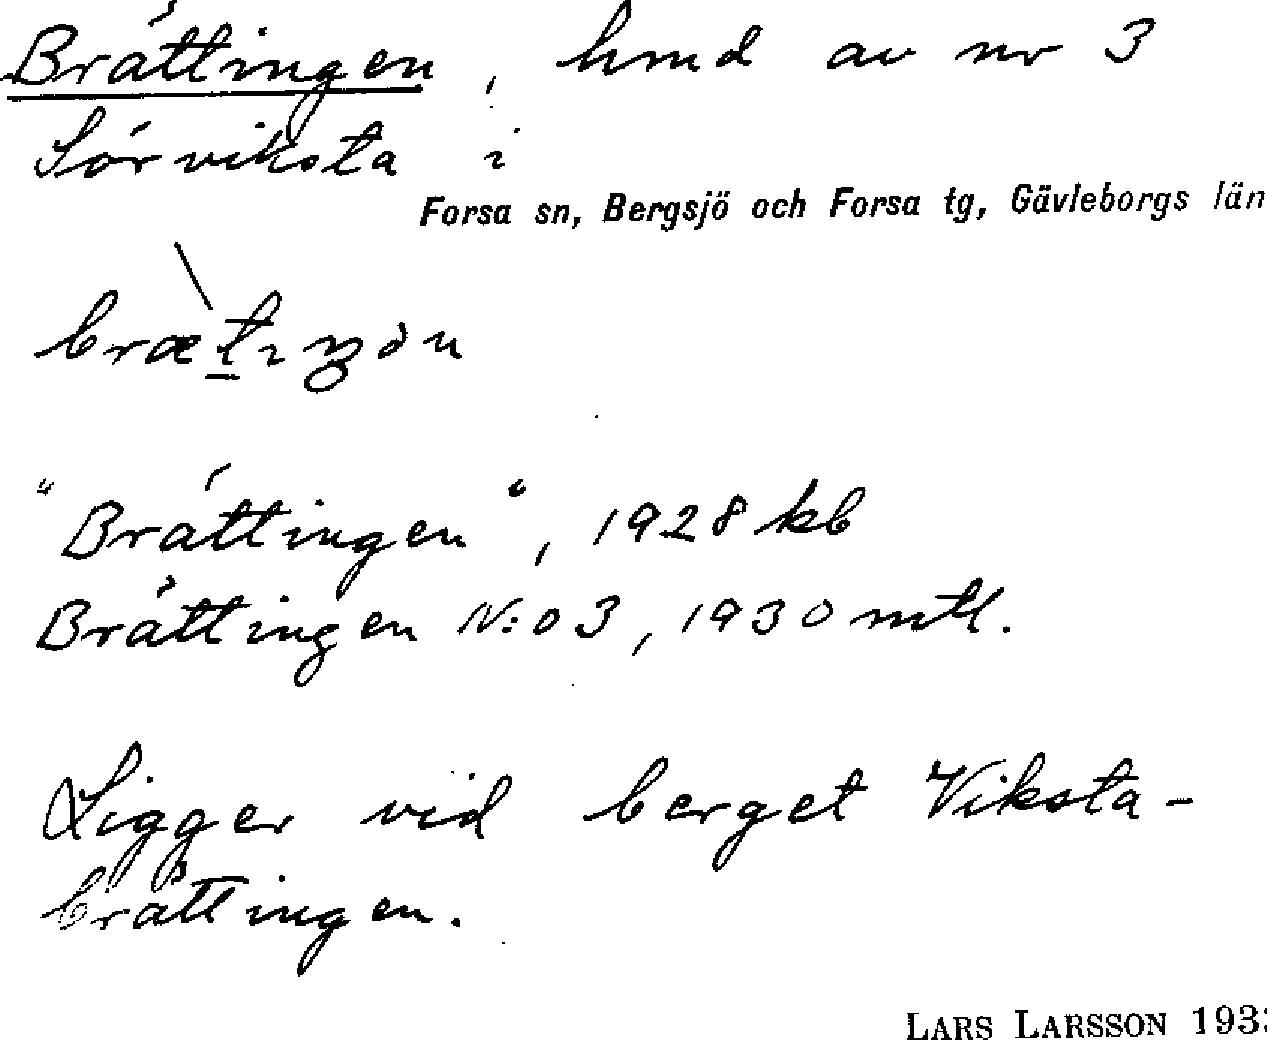 Brättingen, hmd av nr 3
Sörviksta i
Forsa sn, Bergsjö och Forsa tg, Gävleborgs län
"Brättingen", 1928 kb
Brättingen N:o 3, 1930 mtl.
Ligger vid berget Viksta-
brättingen.
LARS LARSSON 193